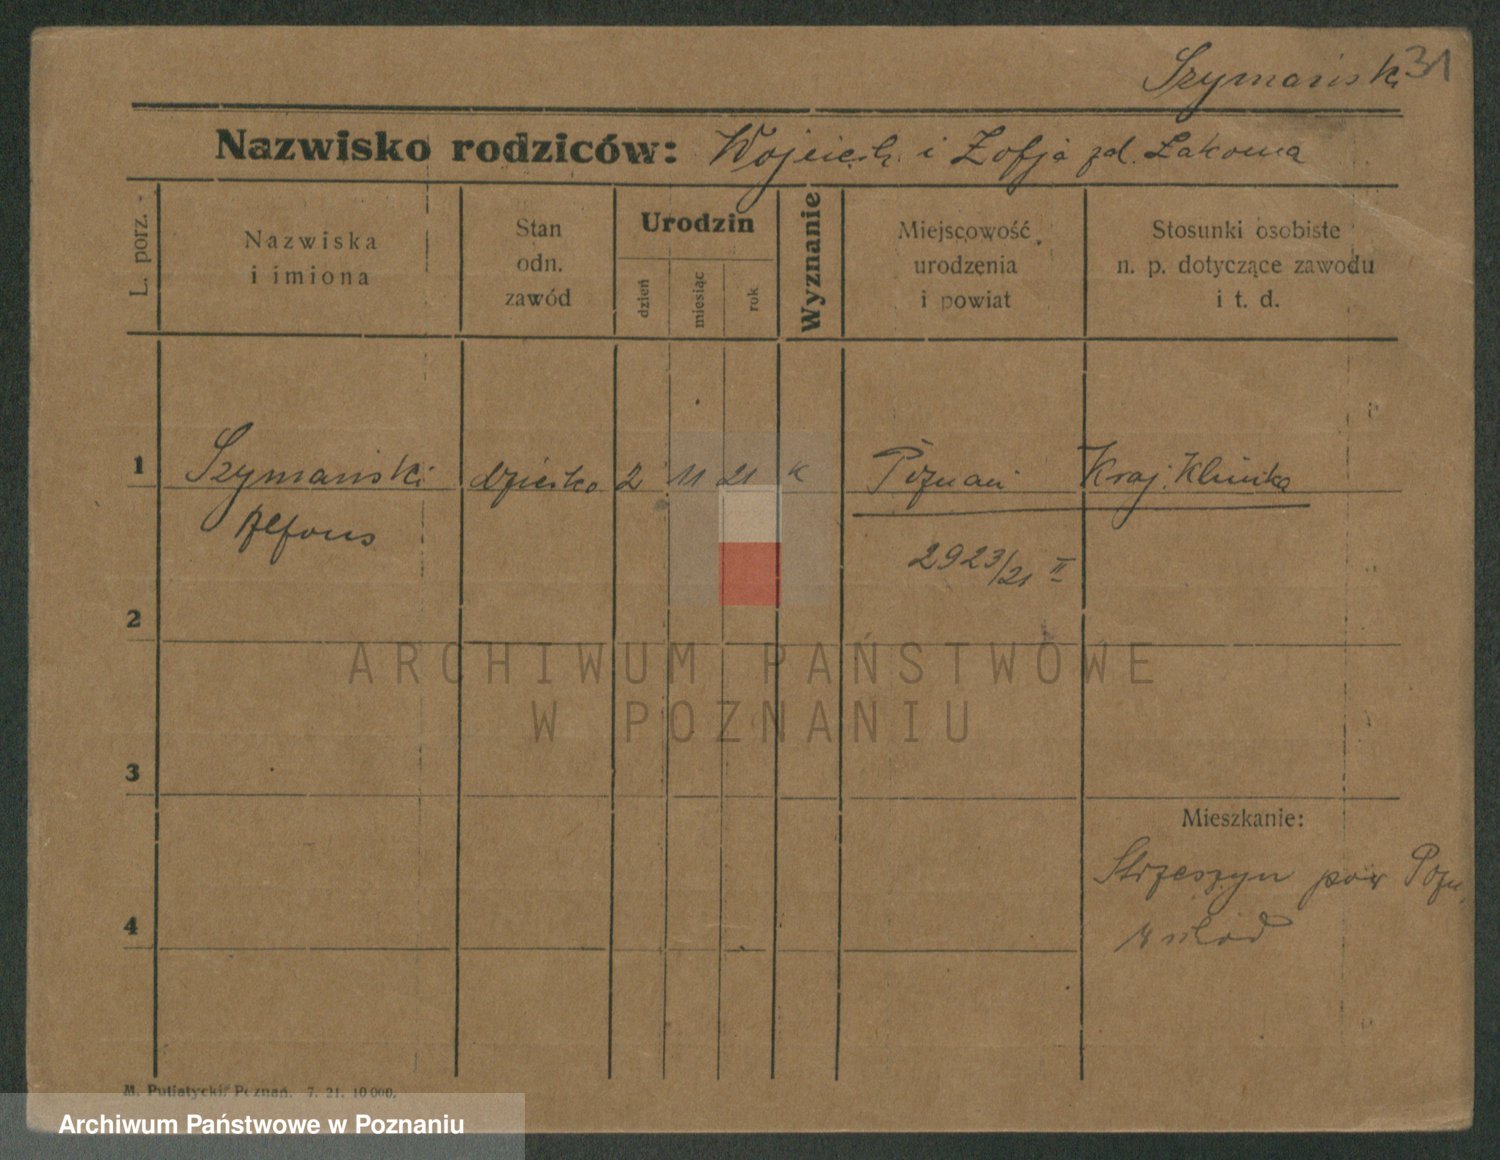 Szymański 31
Nazwisko rodziców: Wojciech i Zofja zd. Łakoma
L. porz.
Nazwiska
i imiona
Stan
odn.
zawód
Urodzin
dzień
miesiąc
rok
Wyznanie
Miejscowość
urodzenia
i powiat
Stosunki osobiste
n. p. dotyczące zawodu
i t. d.
1 Szymański dziecko 2 11 21 K Poznań Kraj. Klinika
Alfons
2923/21 II
2
ARCHIWUM PAŃSTWOWE
W POZNANIU
3
Mieszkanie:
Strzeszyn pow Pozn.
4
M. Putiatycki, Poznań. 7. 21. 10 000.
Archiwum Państwowe w Poznaniu